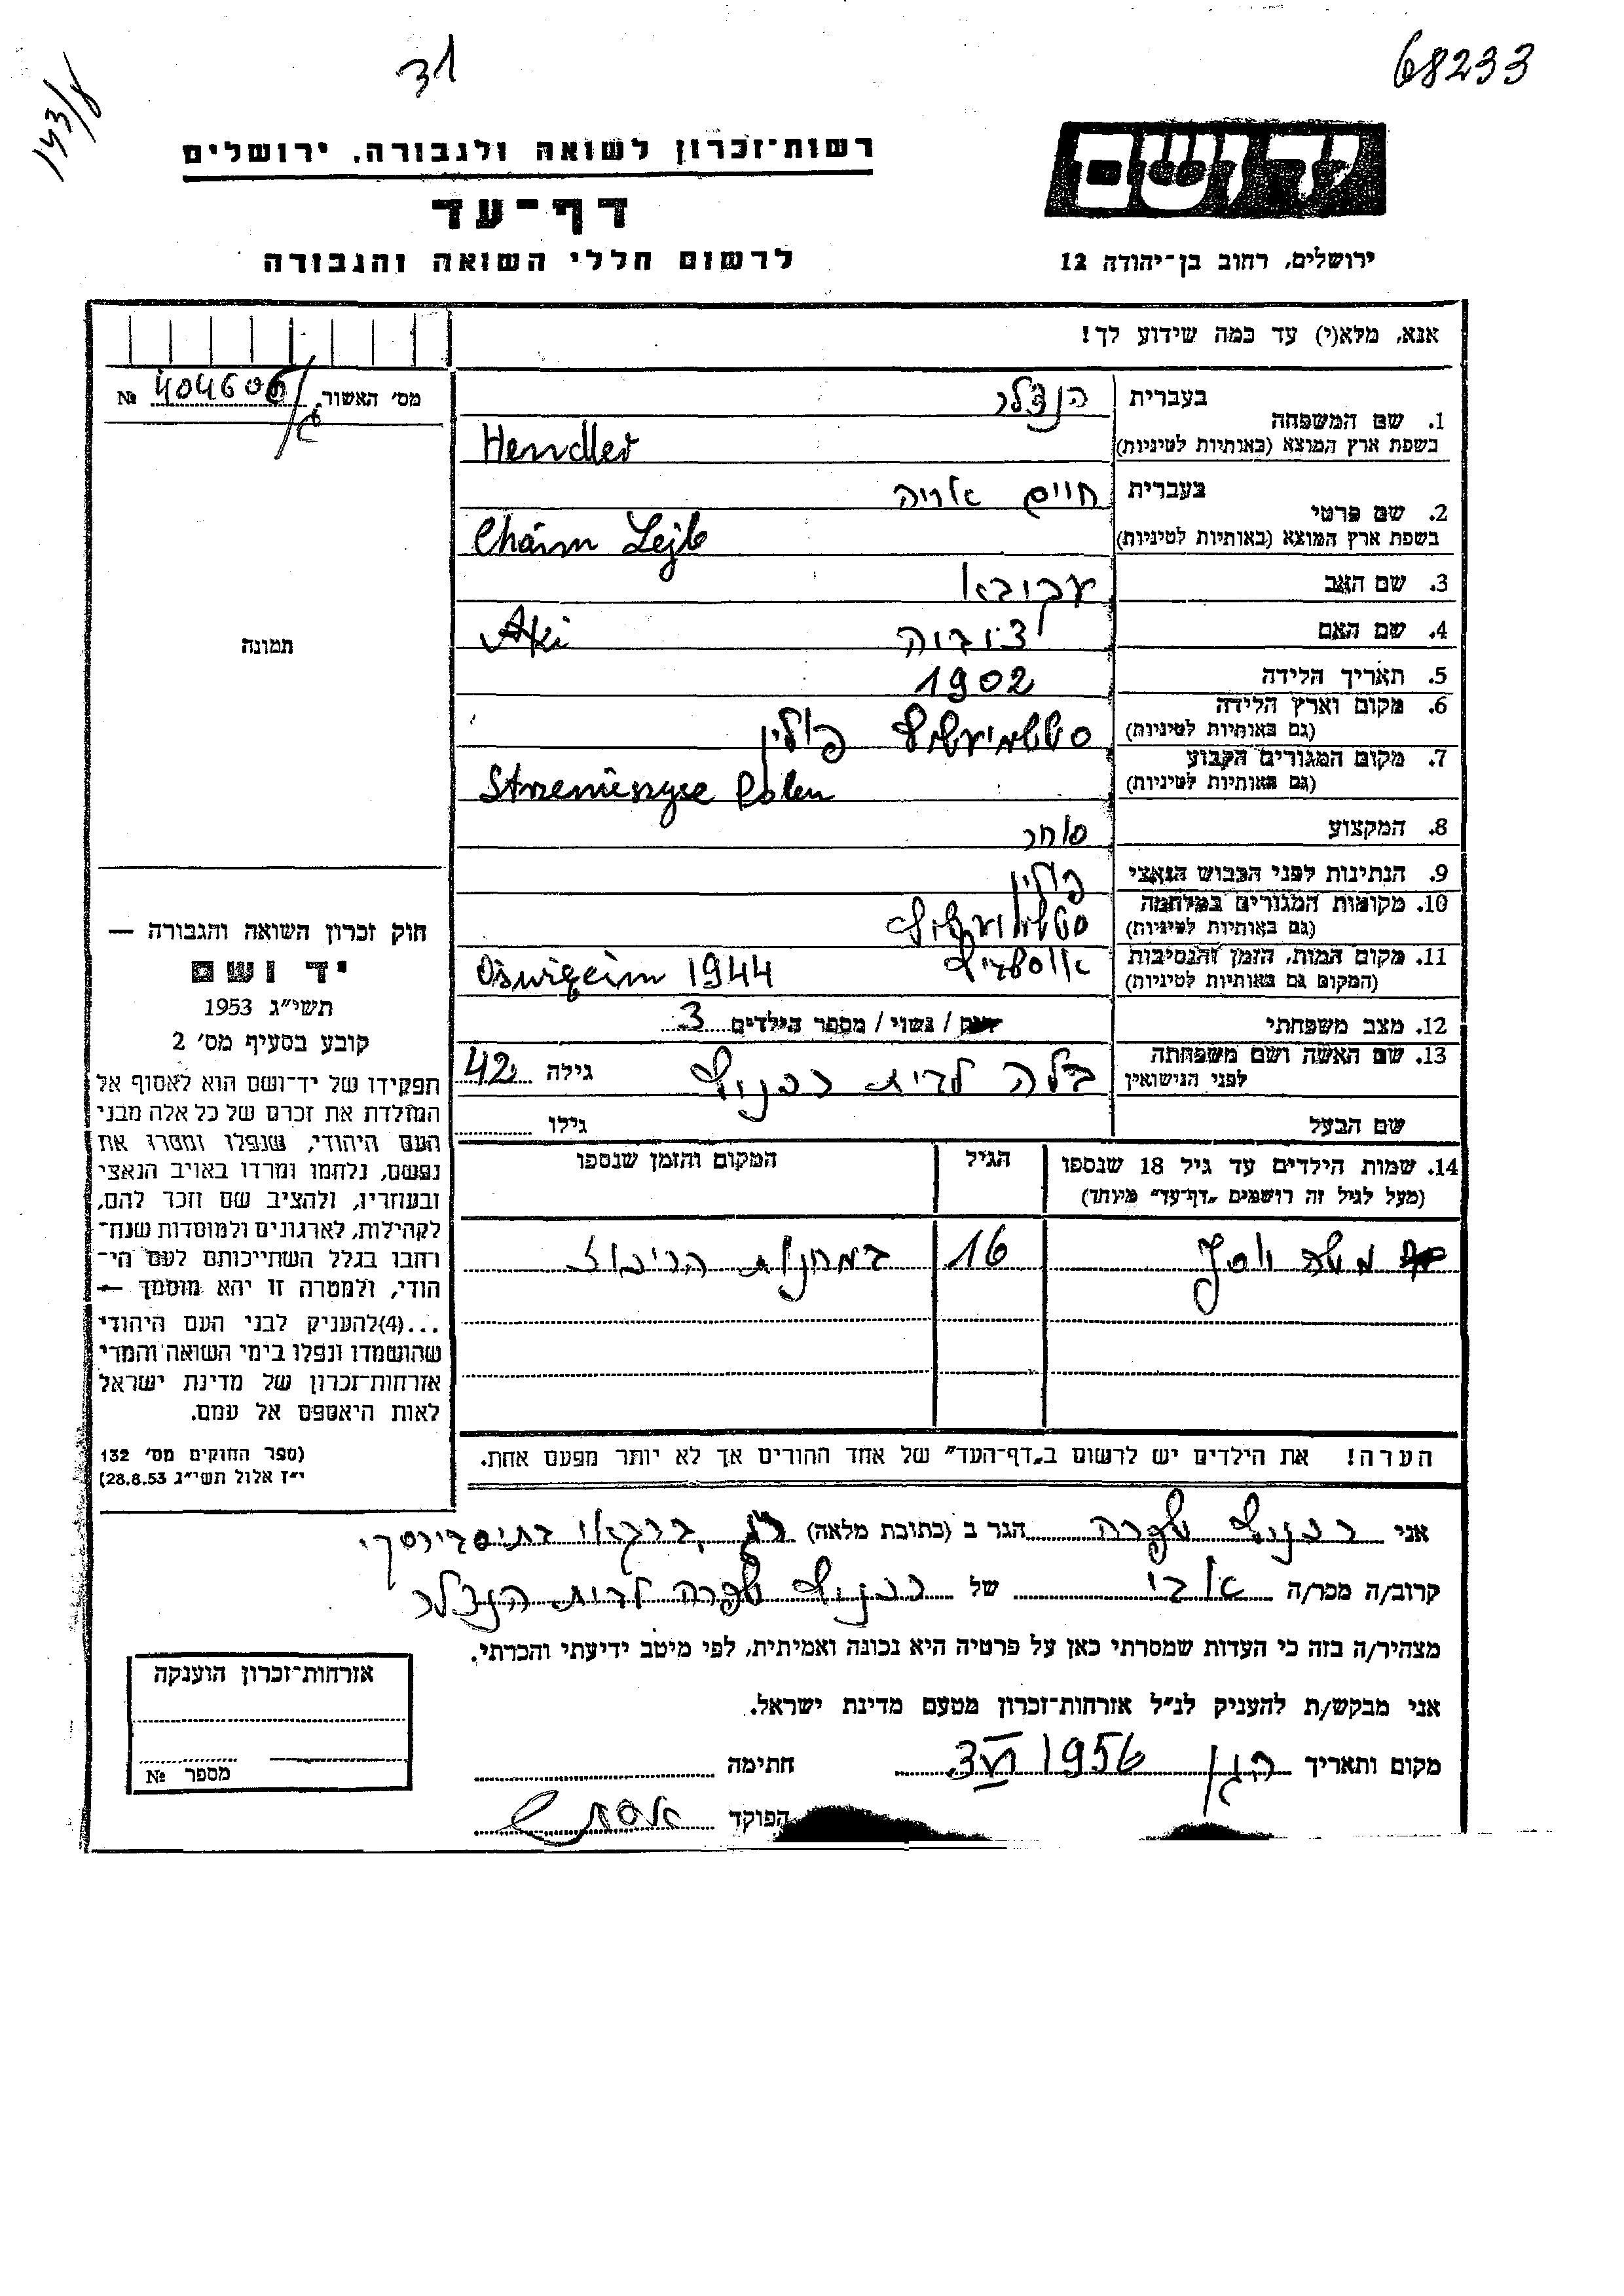 68233
31
143/8
יד ושם
רשות־זכרון לשואה ולגבורה, ירושלים
דף־עד
לרשום חללי השואה והגבורה
ירושלים, רחוב בן־יהודה 12
אנא, מלא(י) עד כמה שידוע לך!
מס׳ האשור № 404606
1. שם המשפחה בעברית הנדלר
בשפת ארץ המוצא (באותיות לטיניות) Hendler
2. שם פרטי בעברית חיים אריה
בשפת ארץ המוצא (באותיות לטיניות) Chaim Lejb
3. שם האב
4. שם האם
5. תאריך הלידה 1902
6. מקום וארץ הלידה
(גם באותיות לטיניות) פולין
7. מקום המגורים הקבוע
(גם באותיות לטיניות) Polen
8. המקצוע סוחר
9. הנתינות לפני הכבוש הנאצי פולין
10. מקומות המגורים במלחמה
(גם באותיות לטיניות)
11. מקום המות, הזמן והנסיבות
(המקום גם באותיות לטיניות) 1944
12. מצב משפחתי / נשוי / מספר הילדים 3
13. שם האשה ושם משפחתה
לפני הנישואין בלה לבית גילה 42
שם הבעל גילו
14. שמות הילדים עד גיל 18 שנספו
(מעל לגיל זה רושמים „דף־עד” מיוחד)
הגיל
המקום והזמן שנספו
משה יוסף 16 במחנות הריכוז
הערה! את הילדים יש לרשום ב„דף־העד” של אחד ההורים אך לא יותר מפעם אחת.
תמונה
חוק זכרון השואה והגבורה —
יד ושם
תשי״ג 1953
קובע בסעיף מס׳ 2
תפקידו של יד־ושם הוא לאסוף אל
המולדת את זכרם של כל אלה מבני
העם היהודי, שנפלו ומסרו את
נפשם, נלחמו ומרדו באויב הנאצי
ובעוזריו, ולהציב שם וזכר להם,
לקהילות, לארגונים ולמוסדות שנח־
רבו בגלל השתייכותם לעם הי־
הודי, ולמטרה זו יהא מוסמך —
...(4)להעניק לבני העם היהודי
שהושמדו ונפלו בימי השואה והמרי
אזרחות־זכרון של מדינת ישראל
לאות היאספם אל עמם.
(ספר החוקים מס׳ 132
י״ז אלול תשי״ג 28.8.53)
אני שפרה הגר ב (כתובת מלאה)
קרוב/ה מכר/ה אבי של שפרה לבית הנדלר
מצהיר/ה בזה כי העדות שמסרתי כאן על פרטיה היא נכונה ואמיתית, לפי מיטב ידיעתי והכרתי.
אני מבקש/ת להעניק לנ״ל אזרחות־זכרון מטעם מדינת ישראל.
מקום ותאריך 3 VI 1956 חתימה
הפוקד
אזרחות־זכרון הוענקה
מספר №